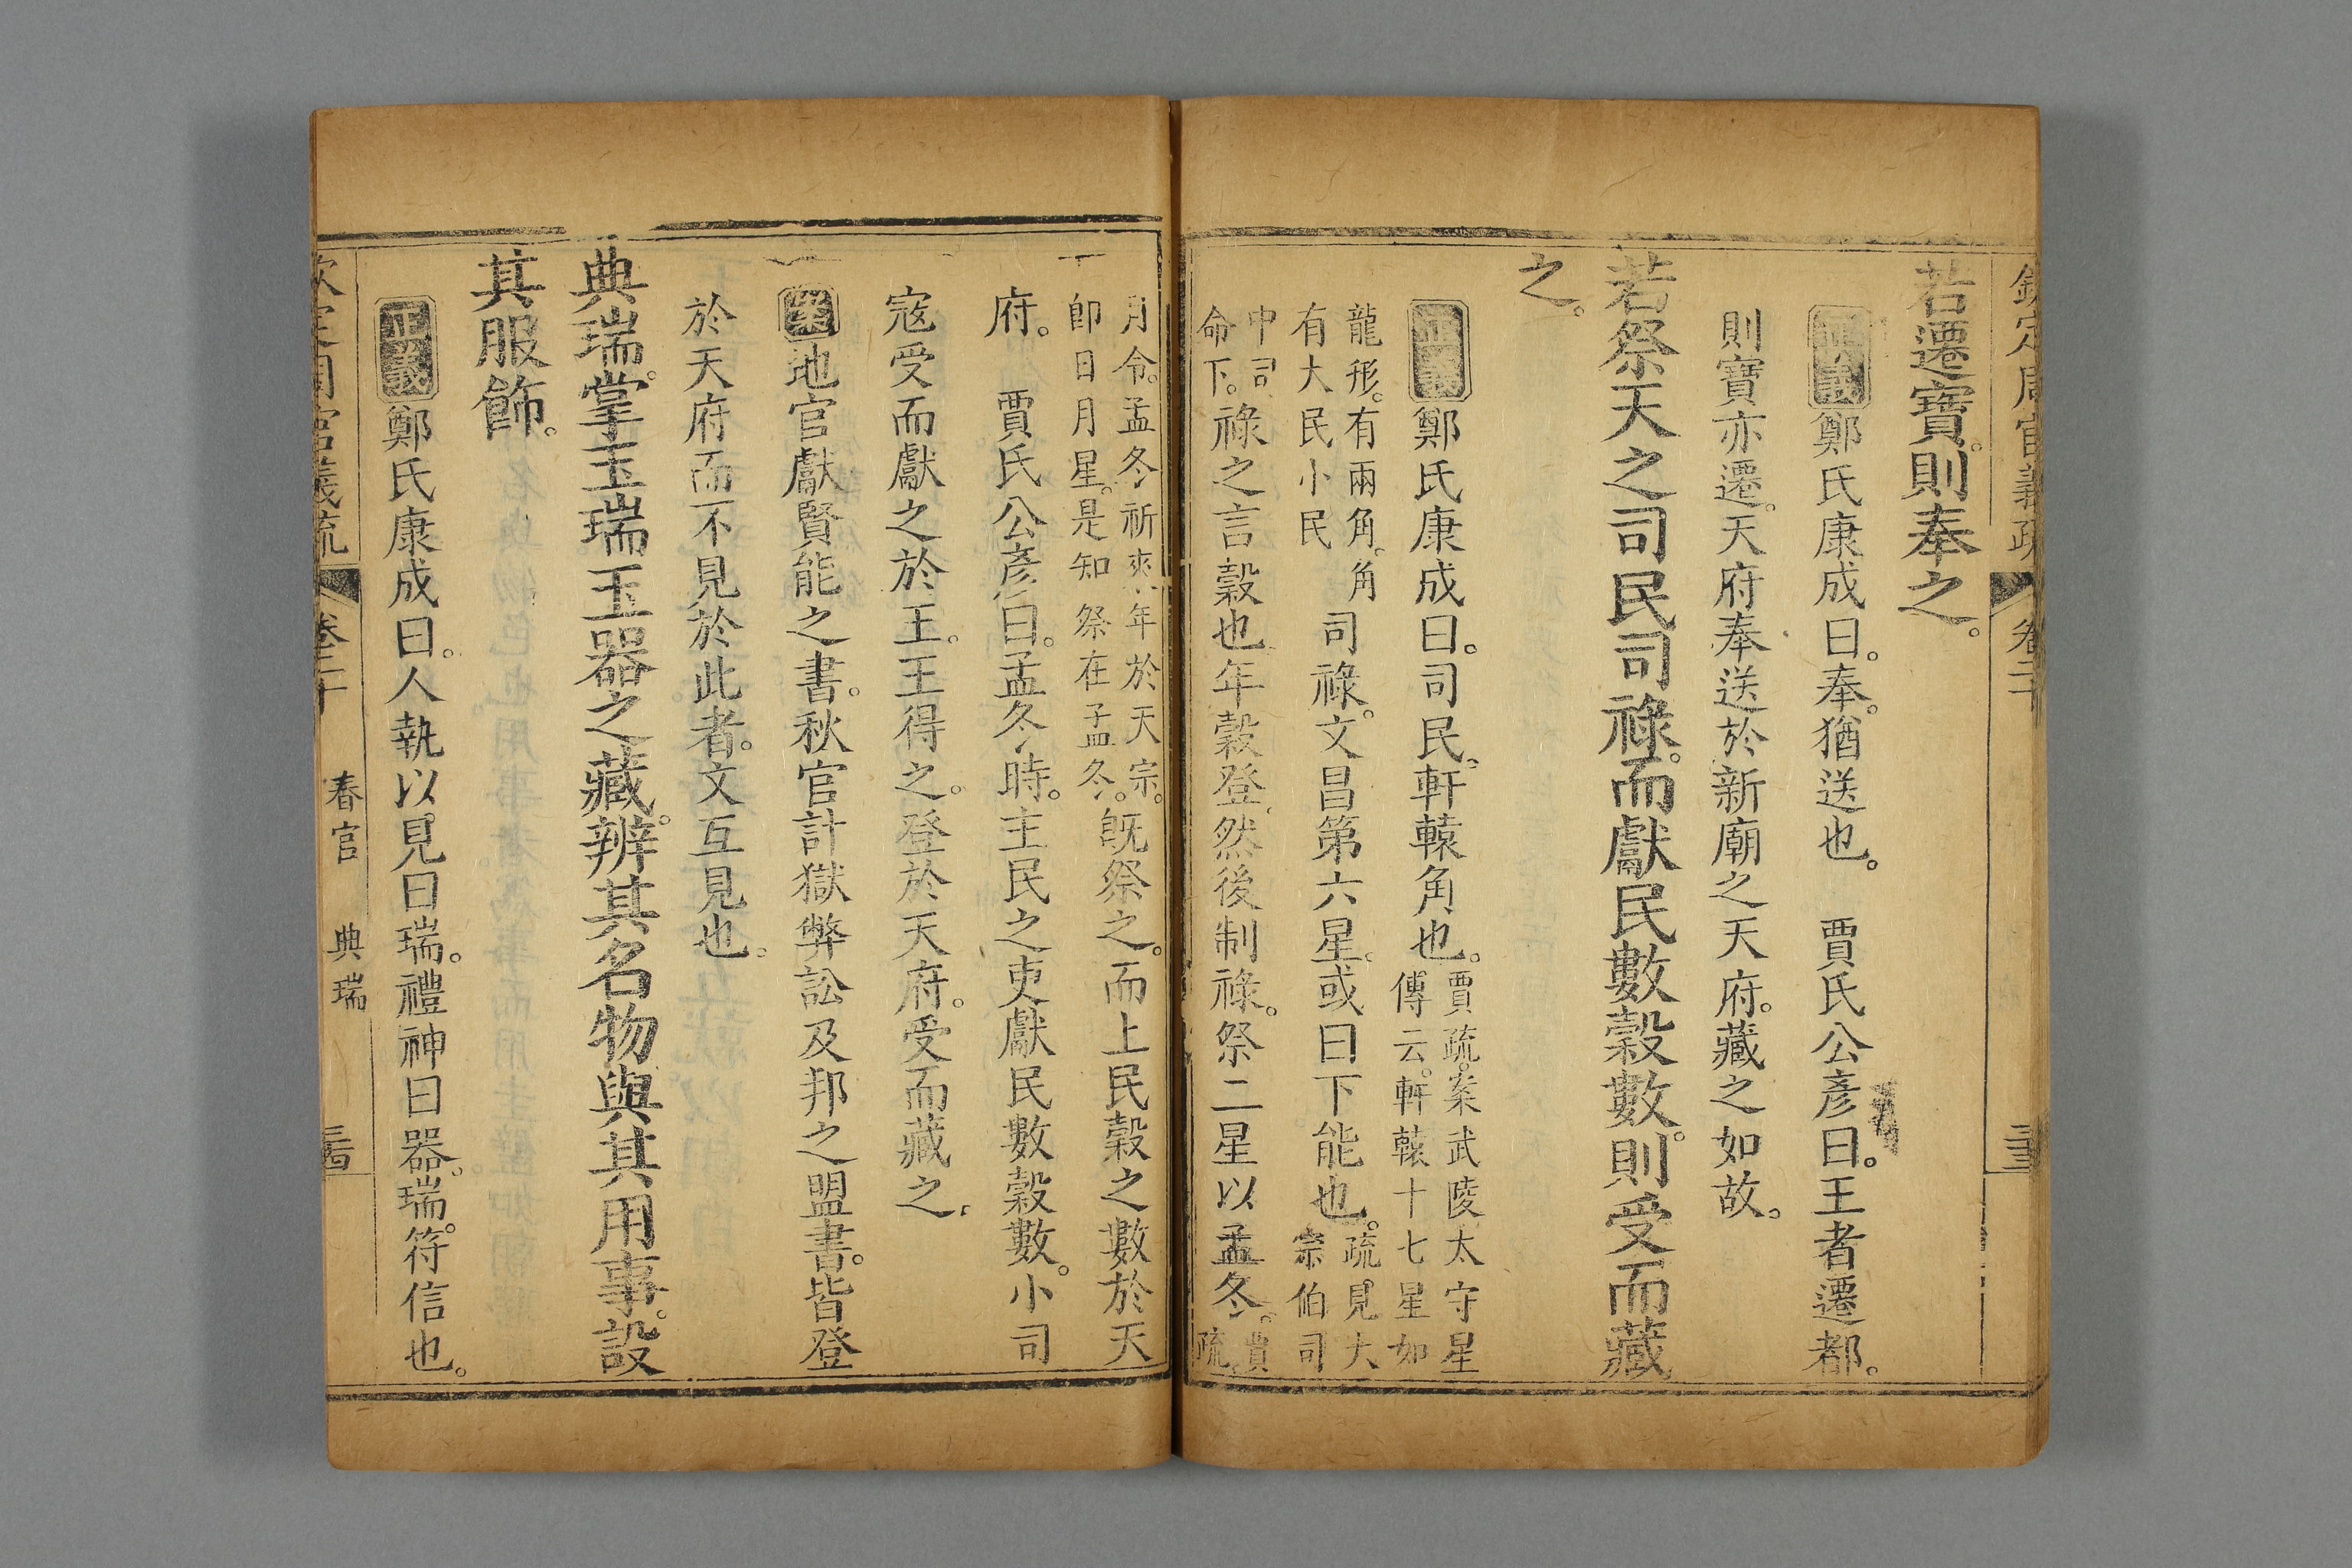 欽定周官義疏 卷二十
若遷寶。則奉之。
正義鄭氏康成曰。奉。猶送也。 賈氏公彥曰。王者遷都。
則寶亦遷。天府奉送於新廟之天府。藏之如故。
若祭天之司民司祿。而獻民數穀數。則受而藏
之。
正義鄭氏康成曰。司民。軒轅角也。賈疏。案武陵太守星
傳云。軒轅十七星如
龍形。有兩角。角
有大民小民
司祿。文昌第六星。或曰下能也。疏。見大
宗伯司
中司
命下。
祿之言穀也年穀登。然後制祿。祭二星以孟冬。賈
疏
月令。孟冬祈來年於天宗。
卽日月星。是知祭在孟冬。
旣祭之。而上民穀之數於天
府。 賈氏公彥曰。孟冬時。主民之吏獻民數穀數。小司
寇受而獻之於王。王得之。登於天府。受而藏之。
案地官獻賢能之書。秋官計獄弊訟及邦之盟書。皆登
於天府而不見於此者。文互見也。
典瑞。掌玉瑞玉器之藏。辨其名物與其用事。設
其服飾。
正義鄭氏康成曰。人執以見曰瑞。禮神曰器。瑞。符信也。
欽定周官義疏 卷二十 春官 典瑞